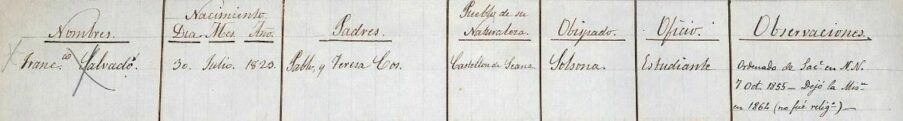 Nombres. Nacimiento Dia. Mes. Año. Padres. Pueblo de su Naturaleza. Obispado. Oficio. Observaciones.
Franc.co Salvadó. 30. Julio. 1823. Pablo, y Teresa Cos. Castellon de Seana Solsona. Estudiante Ordenado de Sac.e en N.N.
7 Oct. 1855 — Dejó la Mis.n
en 1864 (no fué relig.o) —